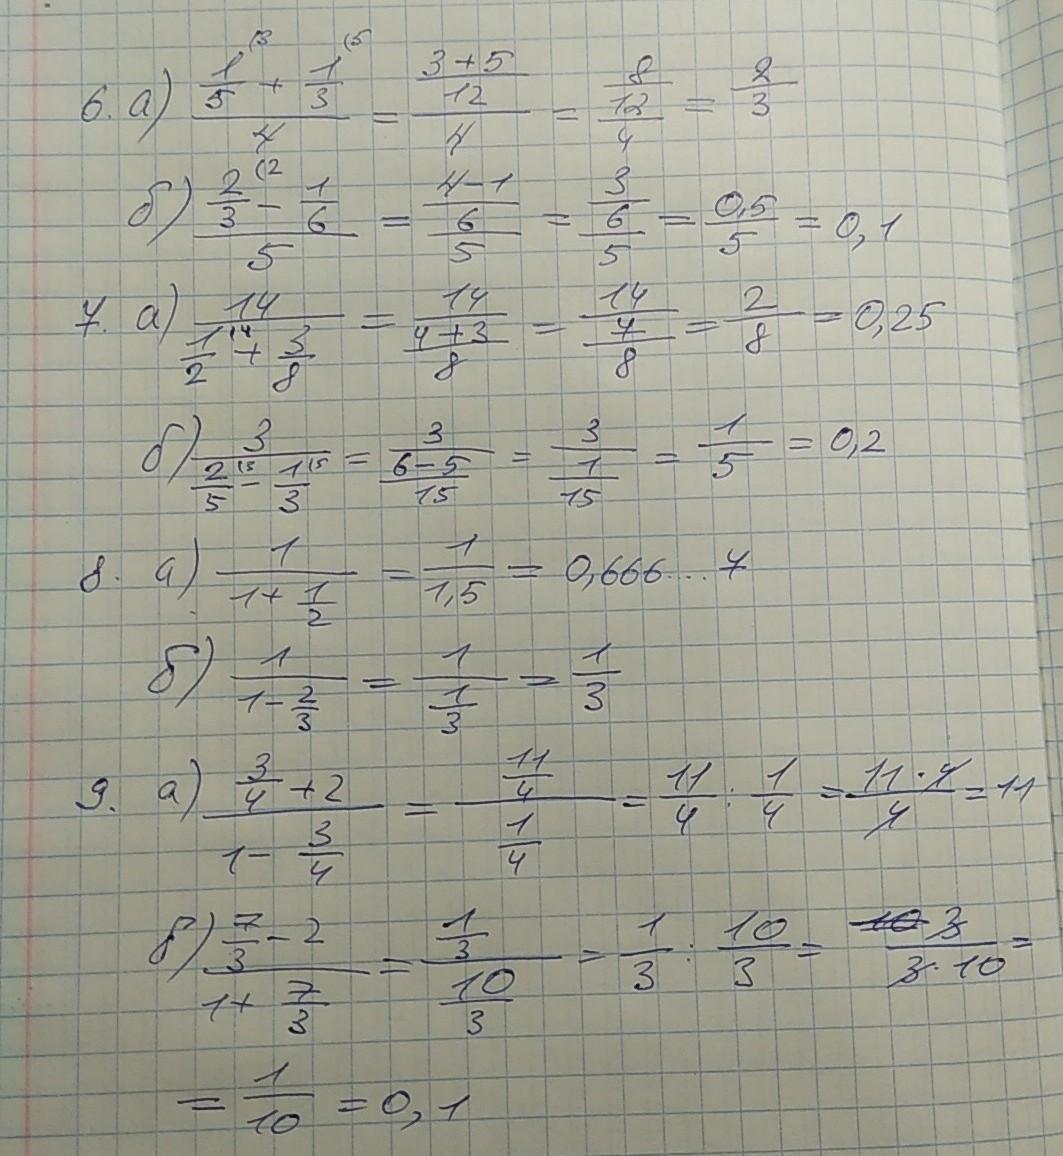 6. а) (1/5 (3 + 1/3 (5)/4 = ((3+5)/12)/4 = (8/12)/4 = 2/3
б) (2/3 (2 - 1/6)/5 = ((4-1)/6)/5 = (3/6)/5 = 0,5/5 = 0,1
7. а) 14/(1/2 (4 + 3/8) = 14/((4+3)/8) = 14/(7/8) = 2/8 = 0,25
б) 3/(2/5 (3 - 1/3 (5) = 3/((6-5)/15) = 3/(1/15) = 1/5 = 0,2
8. а) 1/(1+1/2) = 1/1,5 = 0,666...7
б) 1/(1-2/3) = 1/(1/3) = 1/3
9. а) (3/4+2)/(1-3/4) = (11/4)/(1/4) = 11/4 : 1/4 = (11·4)/4 = 11
б) (7/3-2)/(1+7/3) = (1/3)/(10/3) = 1/3 : 10/3 = 3/(3·10) =
= 1/10 = 0,1